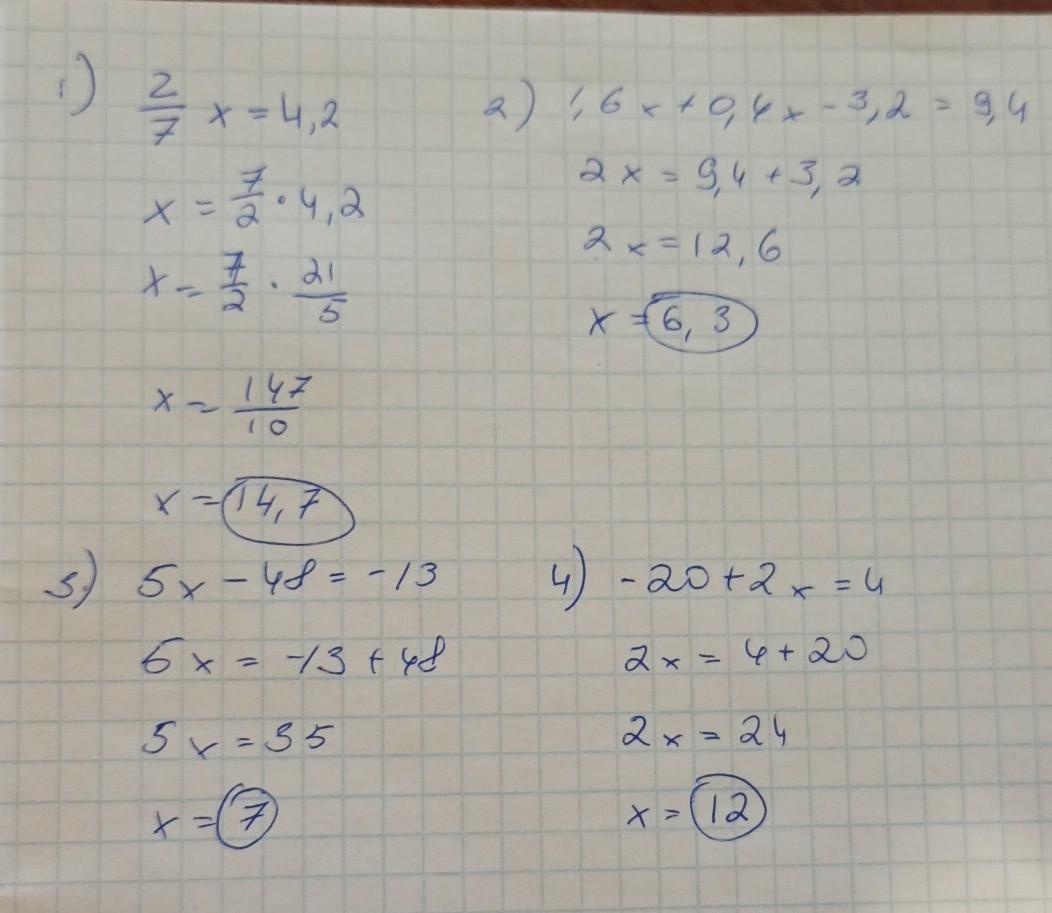 1) 2/7 x = 4,2
x = 7/2 · 4,2
x = 7/2 · 21/5
x = 147/10
x = 14,7
2) 1,6x + 0,4x - 3,2 = 9,4
2x = 9,4 + 3,2
2x = 12,6
x = 6,3
3) 5x - 48 = -13
5x = -13 + 48
5x = 35
x = 7
4) -20 + 2x = 4
2x = 4 + 20
2x = 24
x = 12